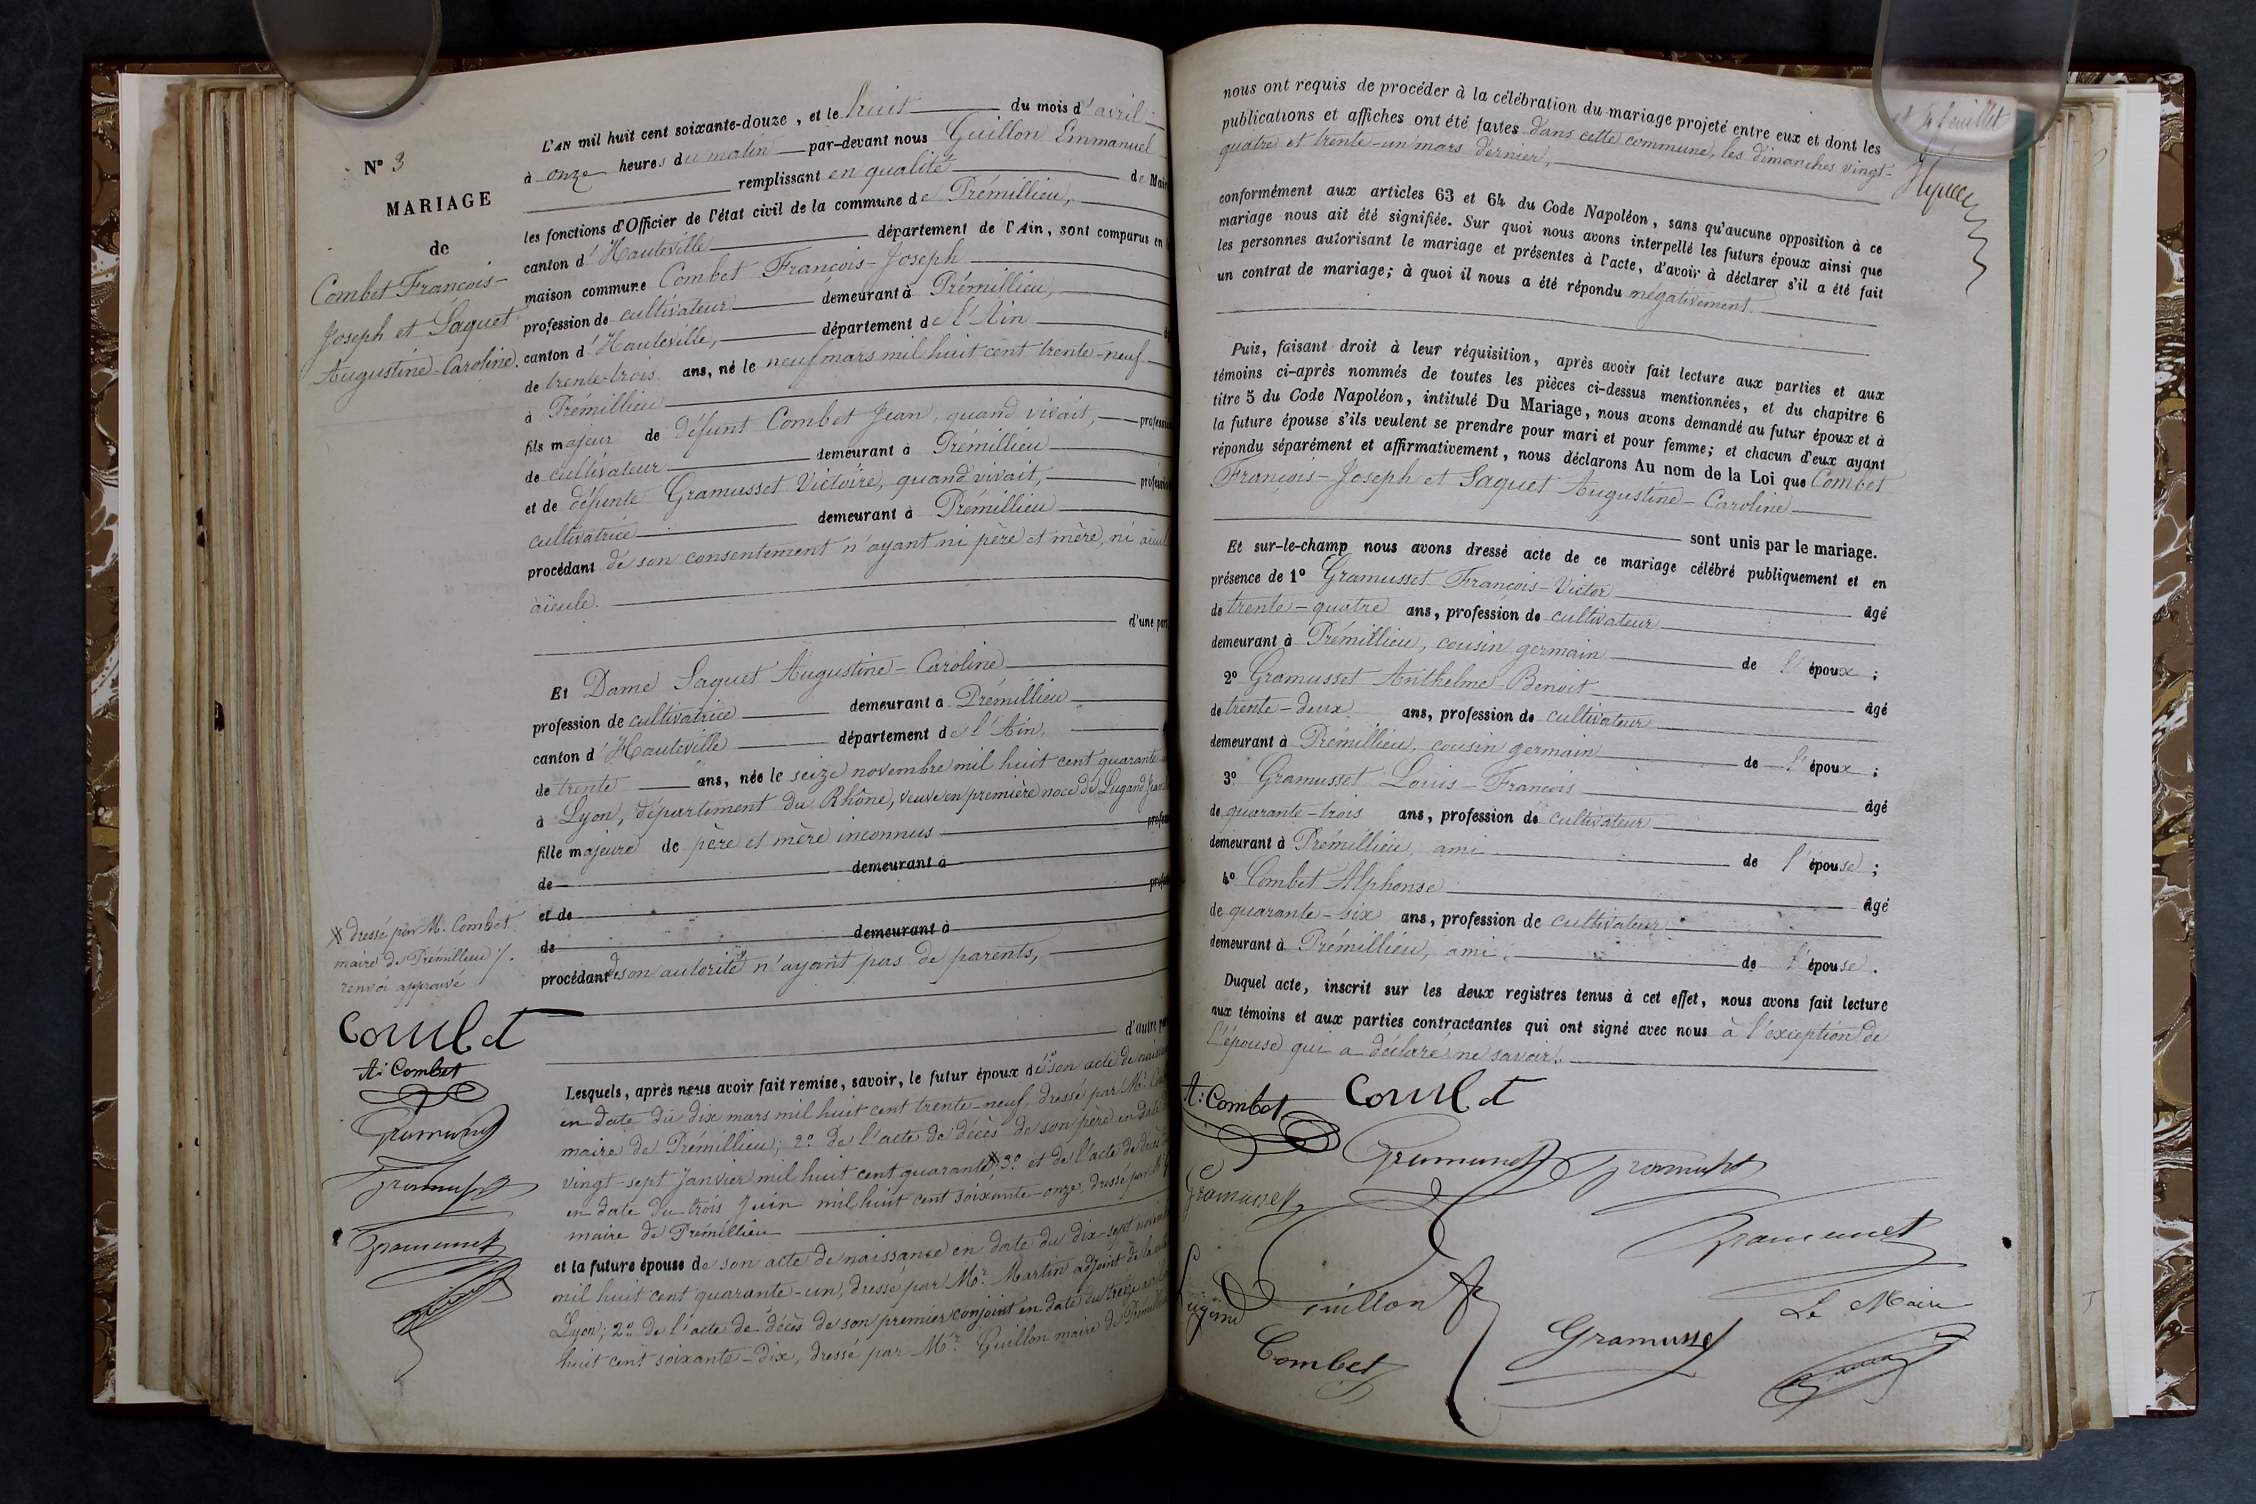 N° 3
MARIAGE
de
Combet François-
Joseph et Saquet
Augustine-Caroline.
L'AN mil huit cent soixante-douze, et le huit du mois d'avril
à onze heures du matin par-devant nous Guillon Emmanuel
remplissant en qualité de Mair
les fonctions d'Officier de l'état civil de la commune de Prémillieu,
canton d'Hauteville département de l'Ain, sont comparus en
maison commune Combet François-Joseph
profession de cultivateur demeurant à Prémillieu,
canton d'Hauteville, département de l'Ain
de trente-trois ans, né le neuf mars mil huit cent trente-neuf
à Prémillieu
fils majeur de défunt Combet Jean, quand vivait, profession
de cultivateur demeurant à Prémillieu
et de défunte Gramusset Victoire, quand vivait, profession
cultivatrice demeurant à Prémillieu
procédant de son consentement n'ayant ni père et mère, ni aïeul
aïeule.
d'une part
Et Dame Saquet Augustine-Caroline
profession de cultivatrice demeurant à Prémillieu
canton d'Hauteville département de l'Ain,
de trente ans, née le seize novembre mil huit cent quarante
à Lyon, département du Rhône, veuve en première noce de Lugand
fille majeure de père et mère inconnus
de demeurant à
et de
de demeurant à
procédant de son autorité n'ayant pas de parents,
d'autre part
# dressé par M. Combet
maire de Prémillieu /.
renvoi approuvé
Combet
A: Combet
Gramusset
Gramusset
Gramusset
Lesquels, après nous avoir fait remise, savoir, le futur époux de 1° son acte de naissance
en date du dix mars mil huit cent trente-neuf, dressé par Mr.
maire de Prémillieu; 2° de l'acte de décès de son père en date
vingt-sept janvier mil huit cent quarante # 3° et de l'acte de décès
en date du trois juin mil huit cent soixante-onze, dressé par
maire de Prémillieu
et la future épouse de son acte de naissance en date du dix-sept novembre
mil huit cent quarante-un, dressé par Mr. Martin adjoint de la
Lyon; 2° de l'acte de décès de son premier conjoint en date du treize
huit cent soixante-dix, dressé par Mr. Guillon maire de Prémillieu
et 4 feuillet
nous ont requis de procéder à la célébration du mariage projeté entre eux et dont les
publications et affiches ont été faites dans cette commune, les dimanches vingt-
quatre et trente-un mars dernier,
conformément aux articles 63 et 64 du Code Napoléon, sans qu'aucune opposition à ce
mariage nous ait été signifiée. Sur quoi nous avons interpellé les futurs époux ainsi que
les personnes autorisant le mariage et présentes à l'acte, d'avoir à déclarer s'il a été fait
un contrat de mariage; à quoi il nous a été répondu négativement.
Puis, faisant droit à leur réquisition, après avoir fait lecture aux parties et aux
témoins ci-après nommés de toutes les pièces ci-dessus mentionnées, et du chapitre 6
titre 5 du Code Napoléon, intitulé Du Mariage, nous avons demandé au futur époux et à
la future épouse s'ils veulent se prendre pour mari et pour femme; et chacun d'eux ayant
répondu séparément et affirmativement, nous déclarons Au nom de la Loi que Combet
François-Joseph et Saquet Augustine-Caroline
sont unis par le mariage.
Et sur-le-champ nous avons dressé acte de ce mariage célébré publiquement et en
présence de 1° Gramusset François-Victor âgé
de trente-quatre ans, profession de cultivateur
demeurant à Prémillieu, cousin germain de l'époux;
2° Gramusset Anthelme-Benoit âgé
de trente-deux ans, profession de cultivateur
demeurant à Prémillieu, cousin germain de l'époux;
3° Gramusset Louis-François âgé
de quarante-trois ans, profession de cultivateur
demeurant à Prémillieu, ami de l'épouse;
4° Combet Alphonse âgé
de quarante-six ans, profession de cultivateur
demeurant à Prémillieu, ami de l'épouse.
Duquel acte, inscrit sur les deux registres tenus à cet effet, nous avons fait lecture
aux témoins et aux parties contractantes qui ont signé avec nous à l'exception de
l'épouse qui a déclaré ne savoir.
A: Combet Combet
Gramusset Gramusset
Gramusset
Gramusset
Eugène Guillon
Le Maire
Combet Gramusset